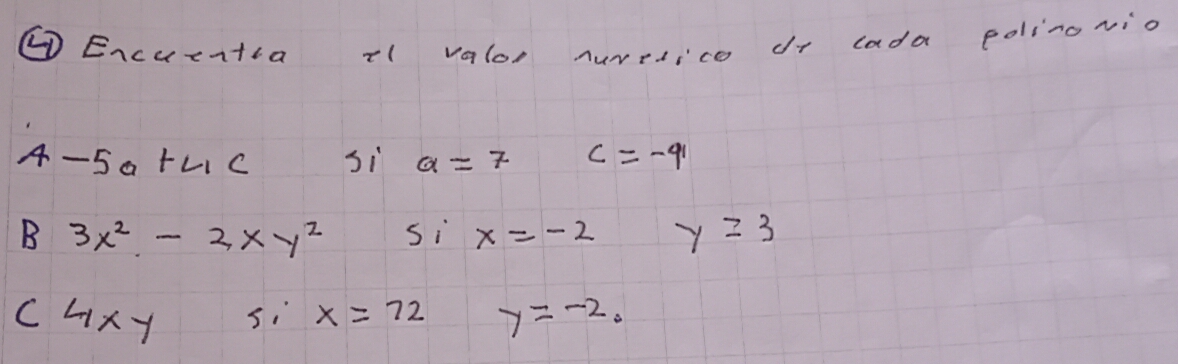 ④ Encuentra el valor numerico de cada polinomio
A -5a + 4c si a = 7 c = -9
B 3x² - 2xy² si x = -2 y = 3
C 4xy si x = 72 y = -2.